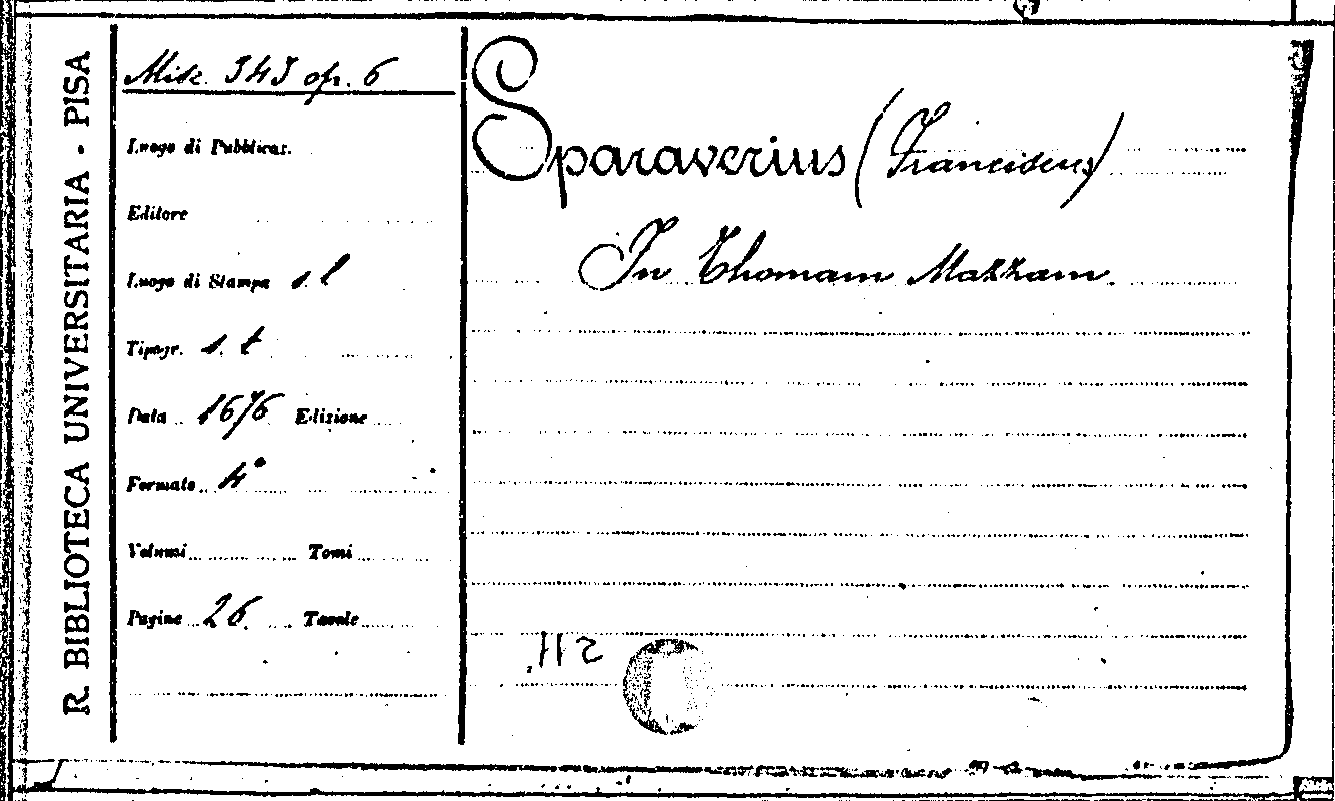 R. BIBLIOTECA UNIVERSITARIA - PISA
Misc. 343 op. 6
Luogo di Pubblicaz.
Editore
Luogo di Stampa s. l
Tipogr. s. t
Data 1676 Edizione
Formato 4°
Volumi Tomi
Pagine 26 Tavole
Sparaverius (Franciscus)
In Thomam Mazzam.